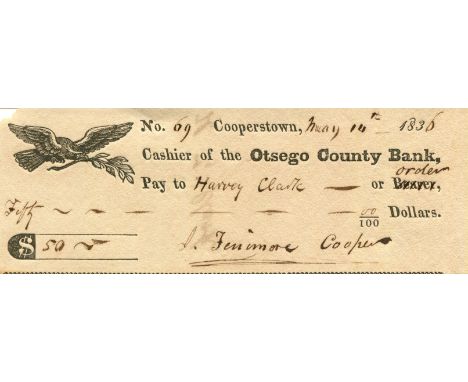 No. 69 Cooperstown, May 14th 1836
Cashier of the Otsego County Bank,
order
Pay to Harvey Clark — or Bearer,
Fifty ~ ~ — — — — — 00/100 Dollars.
$ 50
J. Fenimore Cooper